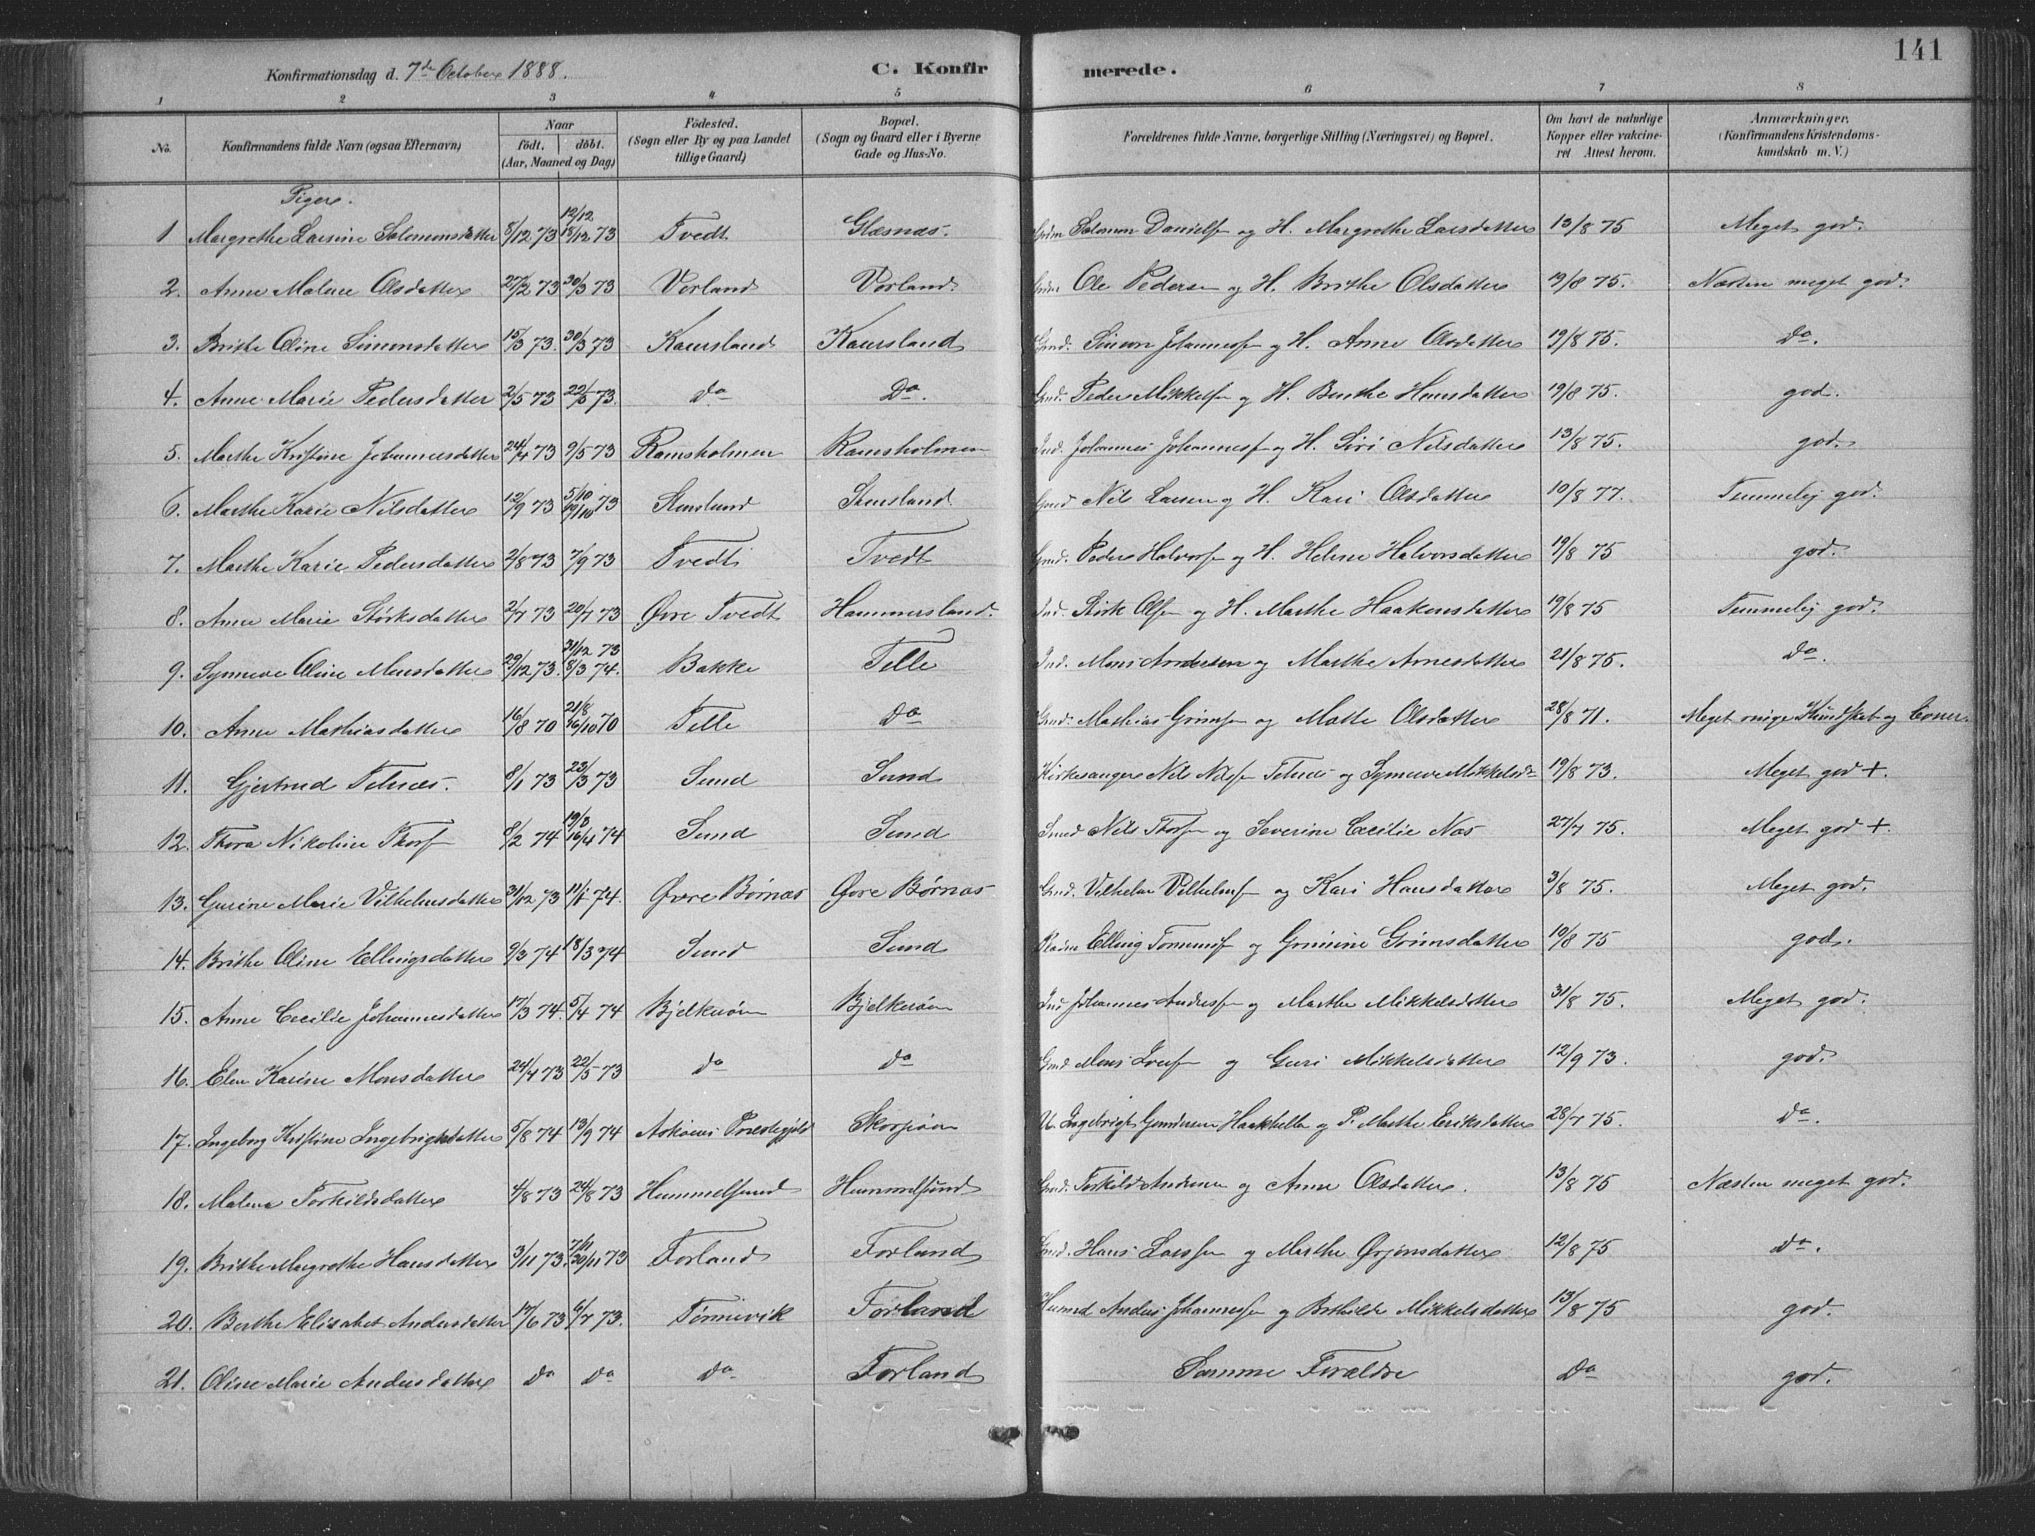 Konfirmationsdag d. 7de October 1888. C. Konfirmerede. 141
1 2 3 4 5 6 7 8
No. Konfirmandens fulde Navn (ogsaa Efternavn) Naar födt. döbt. (Aar, Maaned og Dag) Födested. (Sogn eller By og paa Landet tillige Gaard) Bopæl. (Sogn og Gaard eller i Byerne Gade og Hus-No. Forældrenes fulde Navne, borgerlige Stilling (Næringsvei) og Bopæl. Om havt de naturlige Kopper eller vakcineret Attest herom. Anmærkninger. (Konfirmandens Kristendomskundskab m. V.)
Piger.
1 Margrethe Larsine Salomonsdatter 8/12 73 12/12 18/12 73 Tvedt Glæsnæs. Salomon Danielsen og H. Margrethe Larsdatter 13/8 75 Meget god.
2. Anne Malene Olsdatter 27/2 73 30/3 73 Vorland Vorland Ole Pedersen og H. Brithe Olsdatter 19/8 75. Næsten meget god.
3. Brithe Oline Simonsdatter 15/3 73. 30/3 73 Kausland Kausland Gmd. Simon Johannessen og H. Anne Olsdatter 19/8 75. Do.
4. Anne Marie Pedersdatter 2/5 73 22/5 73. do Do. Gmd. Peder Mikkelsen og H. Berthe Hansdatter 19/8 75. god.
5. Marthe Kristine Johannesdatter 24/4 73 9/5 73 Ramsholmen Ramsholmen Ind. Johannes Johannessen og H. Siri Nilsdatter 13/8 75. god.
6. Marthe Karie Nilsdatter 12/9 73 5/10 73 Stensland Stensland Gmd Nils Larsen og H. Kari Olsdatter 10/8 77. Temmelig god.
7. Marthe Karie Pedersdatter 2/8 73 7/9 73 Tvedt Tvedt Gmd. Peder Halvorsen og H. Helene Halvorsdatter 19/8 75 god.
8. Anne Marie Störksdatter 2/7 73 20/7 73 Øvre Tvedt Hammersland. Ind. Störk Olsen og H. Marthe Haakensdatter 19/8 75 Temmelig god.
9. Synneve Oline Monsdatter 29/12 73. 31/12 73 8/3 74. Bakke Telle Ind. Mons Andersen og Marthe Arnesdatter 21/8 75. do.
10. Anne Mathiasdatter 16/8 70 21/8 16/10 70 Telle do Gmd. Mathias Grimsen og Mette Olsdatter 28/8 71. Meget ringe Kundskab og
11. Gjertrud Telnæs. 8/1 73 23/3 73 Sund Sund Kirkesanger Nils Nilsen Telnæs og Synneve Mikkelsd. 19/8 73. Meget god +.
12. Thora Nikoline Thorsen 8/2 74 16/4 74 Sund Sund Nils Thorsen og Severine Cecilie Næs 27/7 75. Meget god +.
13. Gurine Marie Vilhelmsdatter 31/12 73 11/1 74. Øvre Børnæs Øvre Børnæs Gmd. Vilhelm Vilhelmsen og Kari Hansdatter 3/8 75. Meget god.
14. Brithe Oline Ellingsdatter 9/3 74 18/3 74 Sund Sund Elling Tommesen og Grimine Grimsdatter 19/8 75 god.
15. Anne Cecilie Johannesdatter 17/3 74. 5/4 74 Bjelkeröen Bjelkeröen Ind Johannes Andersen og Marthe Mikkelsdatter 31/8 75. Meget god.
16. Elen Karine Monsdatter 24/4 73 22/5 73 do do Gmd Mons Iversen og Guri Mikkelsdatter 12/9 73. god.
17. Ingeborg Kristine Ingebrigtsdatter 5/8 74 13/9 74 Askøens Præstegjeld Skorpöen U. Ingebrigt Gundersen Haakhella og P. Marthe Eriksdatter 28/7 75. do.
18. Malena Torkildsdatter 4/8 73 24/8 73 Hummelsund Hummelsund Gmd. Torkild Andersen og Anne Olsdatter. 13/8 75 Næsten meget god.
19. Brithe Margrethe Hansdatter 3/11 73. 7/11 20/11 73 Forland Forland Gmd. Hans Larssen og Marthe Ørjansdatter 12/8 75 do.
20. Berthe Elisabet Andersdatter 17/6 73 6/7 73. Tønnevik Forland Husmd Anders Johannessen og Brithilde Mikkelsdatter 13/8 75 god.
21. Oline Marie Andersdatter do do do Forland Samme Forældre Do god.